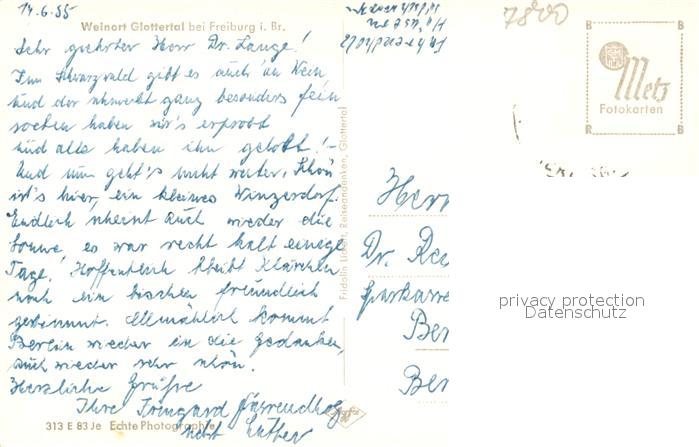 14.6.55
Weinort Glottertal bei Freiburg i. Br.
Sehr geehrter Herr Dr. Lange!
Im Schwarzwald gibt es auch 'an Wein,
und der schmeckt ganz besonders fein
soeben haben wir's erprobt
und alle haben ihn gelobt! -
Und nun geht's nicht weiter. Schön
ist's hier, ein kleines Winzerdorf.
Endlich scheint auch wieder die
Sonne, es war recht kalt einige
Tage! Hoffentlich bleibt Klärchen
noch ein bischen freundlich
gesinnt. Allmählich kommt
Berlin wieder in die Gedanken,
auch wieder sehr schön.
Herzliche Grüsse
Ihre Irmgard
nebst
313 E 83 Je Echte Photographie
Fridolin Reiseandenken, Glottertal
7800
B B
Metz
Fotokarten
R R
Herr
Dr.
Sparkasse
Ber
Ber
privacy protection
Datenschutz